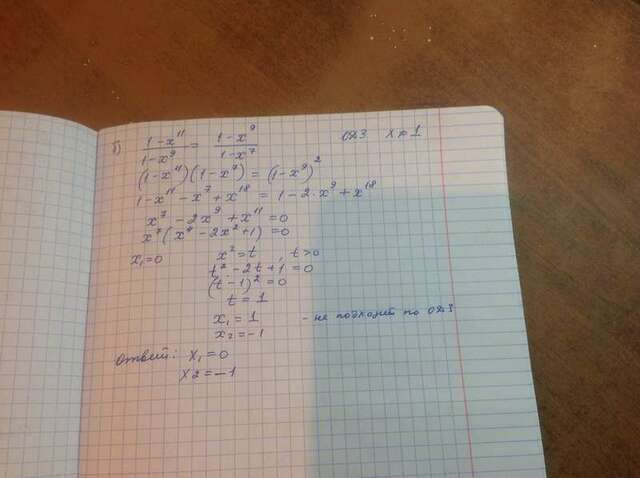 б) (1-x^11)/(1-x^9) = (1-x^9)/(1-x^7) ОДЗ x ≠ 1
(1-x^11)(1-x^7) = (1-x^9)^2
1-x^11-x^7+x^18 = 1-2·x^9+x^18
x^7-2x^9+x^11=0
x^7(x^4-2x^2+1)=0
x₁=0 x^2=t, t>0
t^2-2t+1=0
(t-1)^2=0
t=1
x₁=1 - не подходит по ОДЗ
x₂=-1
Ответ: x₁=0
x2=-1